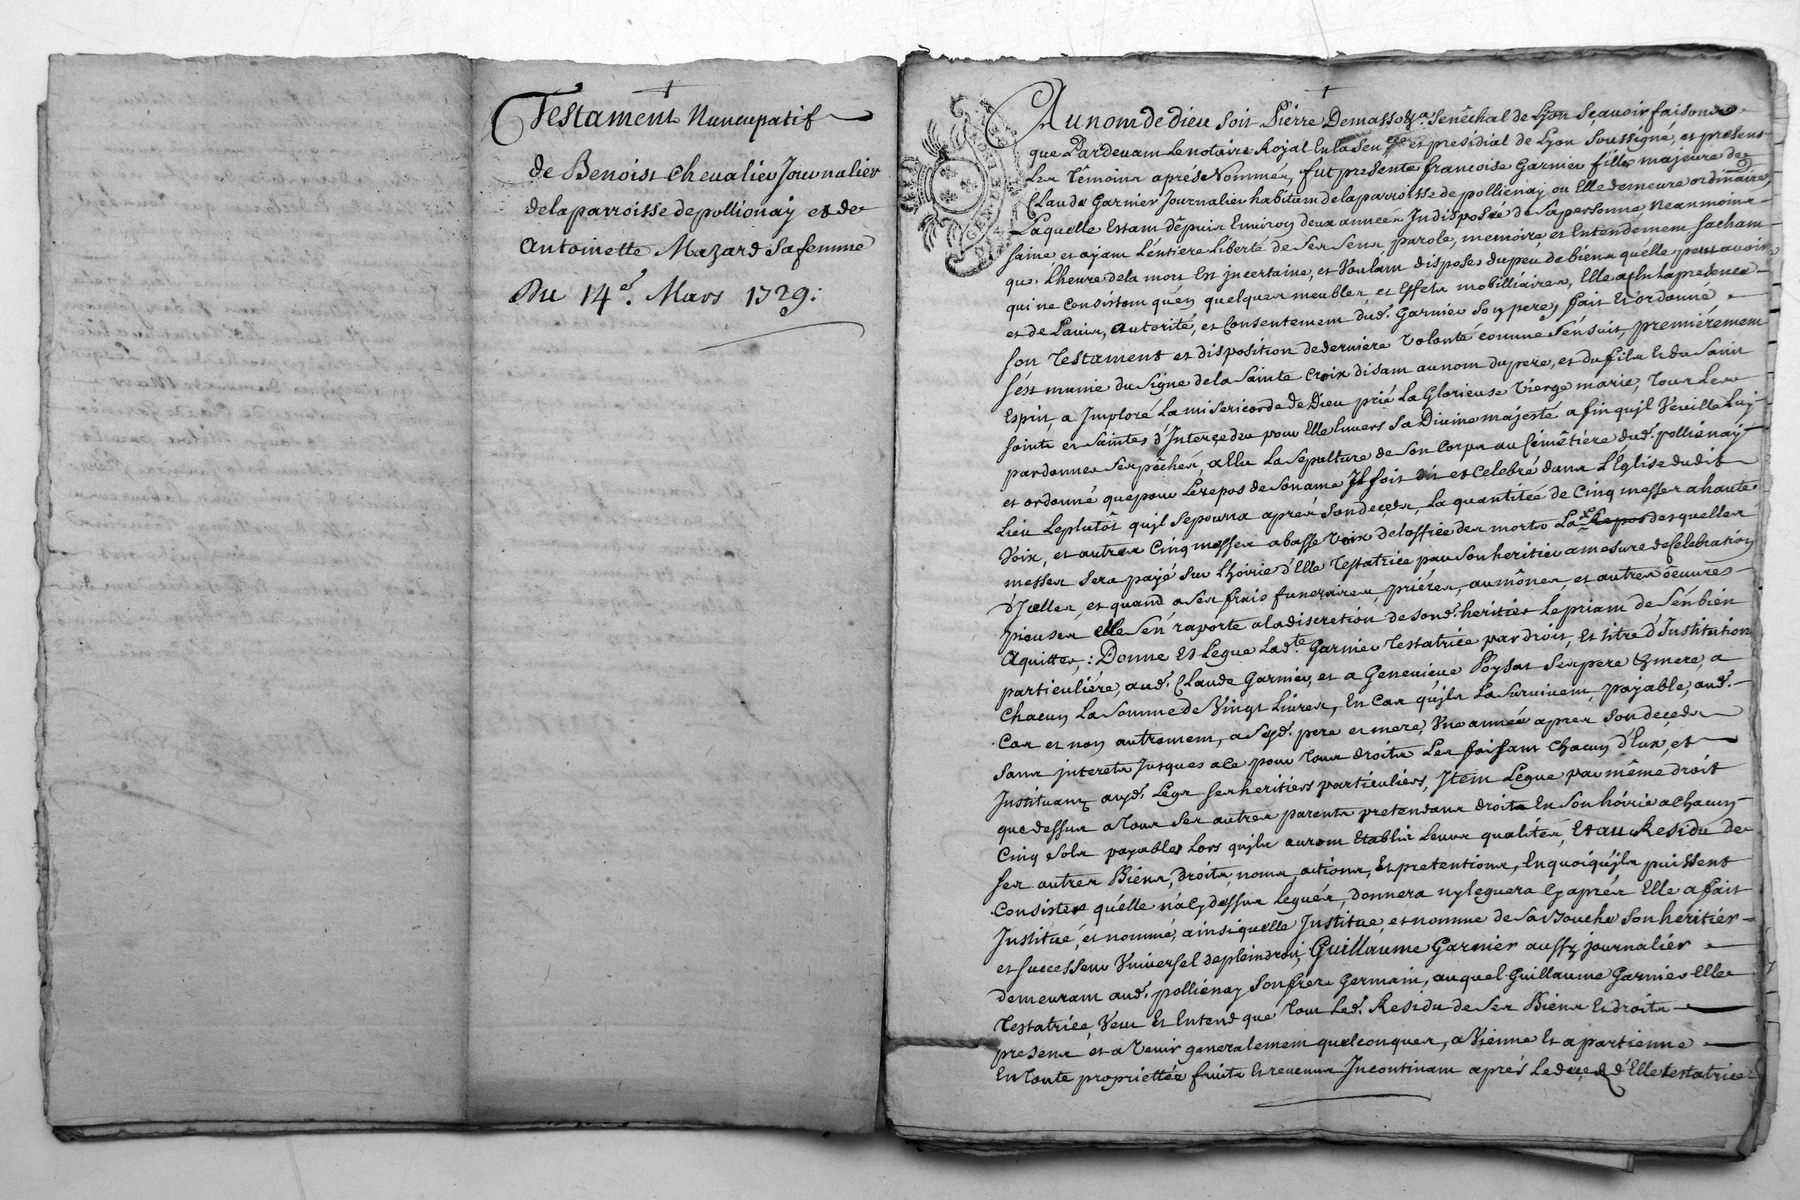 Testament Nuncupatif
de Benoist chevalier Journalier
delaparroisse depollionaÿ et de
antoinette Mazard Safemme
Du 14e. Mars 1729:
Au nom de dieu Soit Pierre Demasso Senêchal de Lyon Sçavoir faisons
que Pardevant Lenotaire Royal En la Senée. et presidial de Lyon Soussigné, et presens
Les Témoins aprés Nommés, fut presente francoise Garnier fille majeure de
Claude Garnier Journalier habitant delaparroisse de pollienay ou Elle demeure ordinaire,
Laquelle Estant dêpuis Environ deux années Indisposée de Sapersonne, neanmoins
saine et ayant L'éntiere Liberté de Ses Sens parole, memoire, et Entendement sachant
que L'heure dela mort Est jncertaine, et Voulant disposer du peu de biens qu'elle peut avoir
qui ne Consistent qu'en quelques meubles et Effets mobilliaires, Elle a En Lapresence
et de Lavis, autorité, et Consentement dud. Garnier Son pere, fait Et ordonné
son Testament et disposition dederniere Volonté comme S'énsuit, premiérement
s'est munie du Signe dela Sainte Croix disant au nom du pere, et du fils Et du Saint
Esprit, a Imploré La misericorde de Dieu prié La Glorieuse Vierge marie, Tous Les
saints et Saintes d'Interçeder pour Elle Envers Sa Divine majesté a fin qu'jl Veuille Luy
pardonner Ses pêchés, a Elu La Sepulture de Son Corps au Cémétiére dud. pollienaÿ
et ordonné que pour Lerepos de Son ame Jl soit dit et Celebré dans L'Eglise dudit
Lieu Leplutôt qu'jl Sepourra aprés Sondeçeds, La quantitée de Cinq messes a haute
Voix, et autres Cinq messes a basse Voix de L'office des morts La desquelles
messes Sera payé Sur L'hoirie d'Elle Testatrice par Son heritier a mesure de Celebration
d'Jcelles, et quand a Ses frais funeraires, priéres, aumônes, et autres oeuvres
pieuses elle S'en raporte a la discretion de Sond. heritier Lepriant de S'én bien
Aquitter,: Donne Et Legue Lad.te Garnier Testatrice par droit, Et titre d'Institution
particuliére, aud. Claude Garnier, et a Genevieve Poysat Ses pere & mere, a
Chacun La Somme de Vingt Livres, En Cas qu'jls La Survivent, payable, aud.
Cas et non autrement, a Sesd. pere et mere, Une année aprés Son deçeds
sans jnterets Jusques a Ce pour Tous droits Les faisant Chacun d'Eux, et
Instituant aud. Legs Ses heritiers particuliers, Jtem Legue par même droit
que dessus a tous Ses autres parents pretendans droits En Son hoirie a Chacun
Cinq Sols payables Lors qu'jls auront Etablir Leurs qualités, Et au Residu de
ses autres Biens, droits, noms, actions, Et pretentions, En quoi qu'jls puissent
Consister qu'elle n'a Cy dessus Legués, donnera ny leguera Cy aprés Elle a fait
Institué, et nommé, ainsi quelle Institue, et nomme de Sa Bouche Son heritiér
et successeur Universel de plein droit, Guillaume Garnier aussy journaliér
demeurant aud. pollienay Son frere Germain, auquel Guillaume Garnier Elle
Testatrice, Veut Et Entend que Tout Led. Residu de Ses Biens Et droits
presens et a Venir generalement quelconques, a Vienne Et a partienne
En Toute propriettée fruits Et revenus Incontinant aprés Ledeçeds d'Elle testatrice